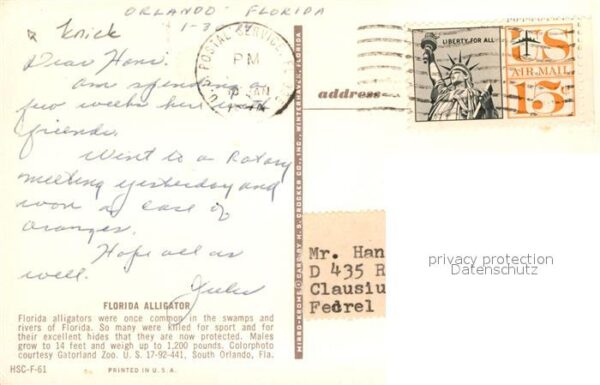 ORLANDO FLORIDA
1-3
Knick
Dear Hans.
Am spending a
few weeks here with
friends.
Went to a Rotary
meeting yesterday and
won a case of
oranges.
Hope all are
well.
Jules
U.S. POSTAL SERVICE
PM
JAN
LIBERTY FOR ALL
US
AIR MAIL
15¢
address
MIRRO-KROME® CARD BY H. S. CROCKER CO., INC., WINTER HAVEN, FLORIDA
Mr. Han
D 435 R
Clausiu
Fedrel
privacy protection
Datenschutz
FLORIDA ALLIGATOR
Florida alligators were once common in the swamps and
rivers of Florida. So many were killed for sport and for
their excellent hides that they are now protected. Males
grow to 14 feet and weigh up to 1,200 pounds. Colorphoto
courtesy Gatorland Zoo. U. S. 17-92-441, South Orlando, Fla.
HSC-F-61
PRINTED IN U. S. A.